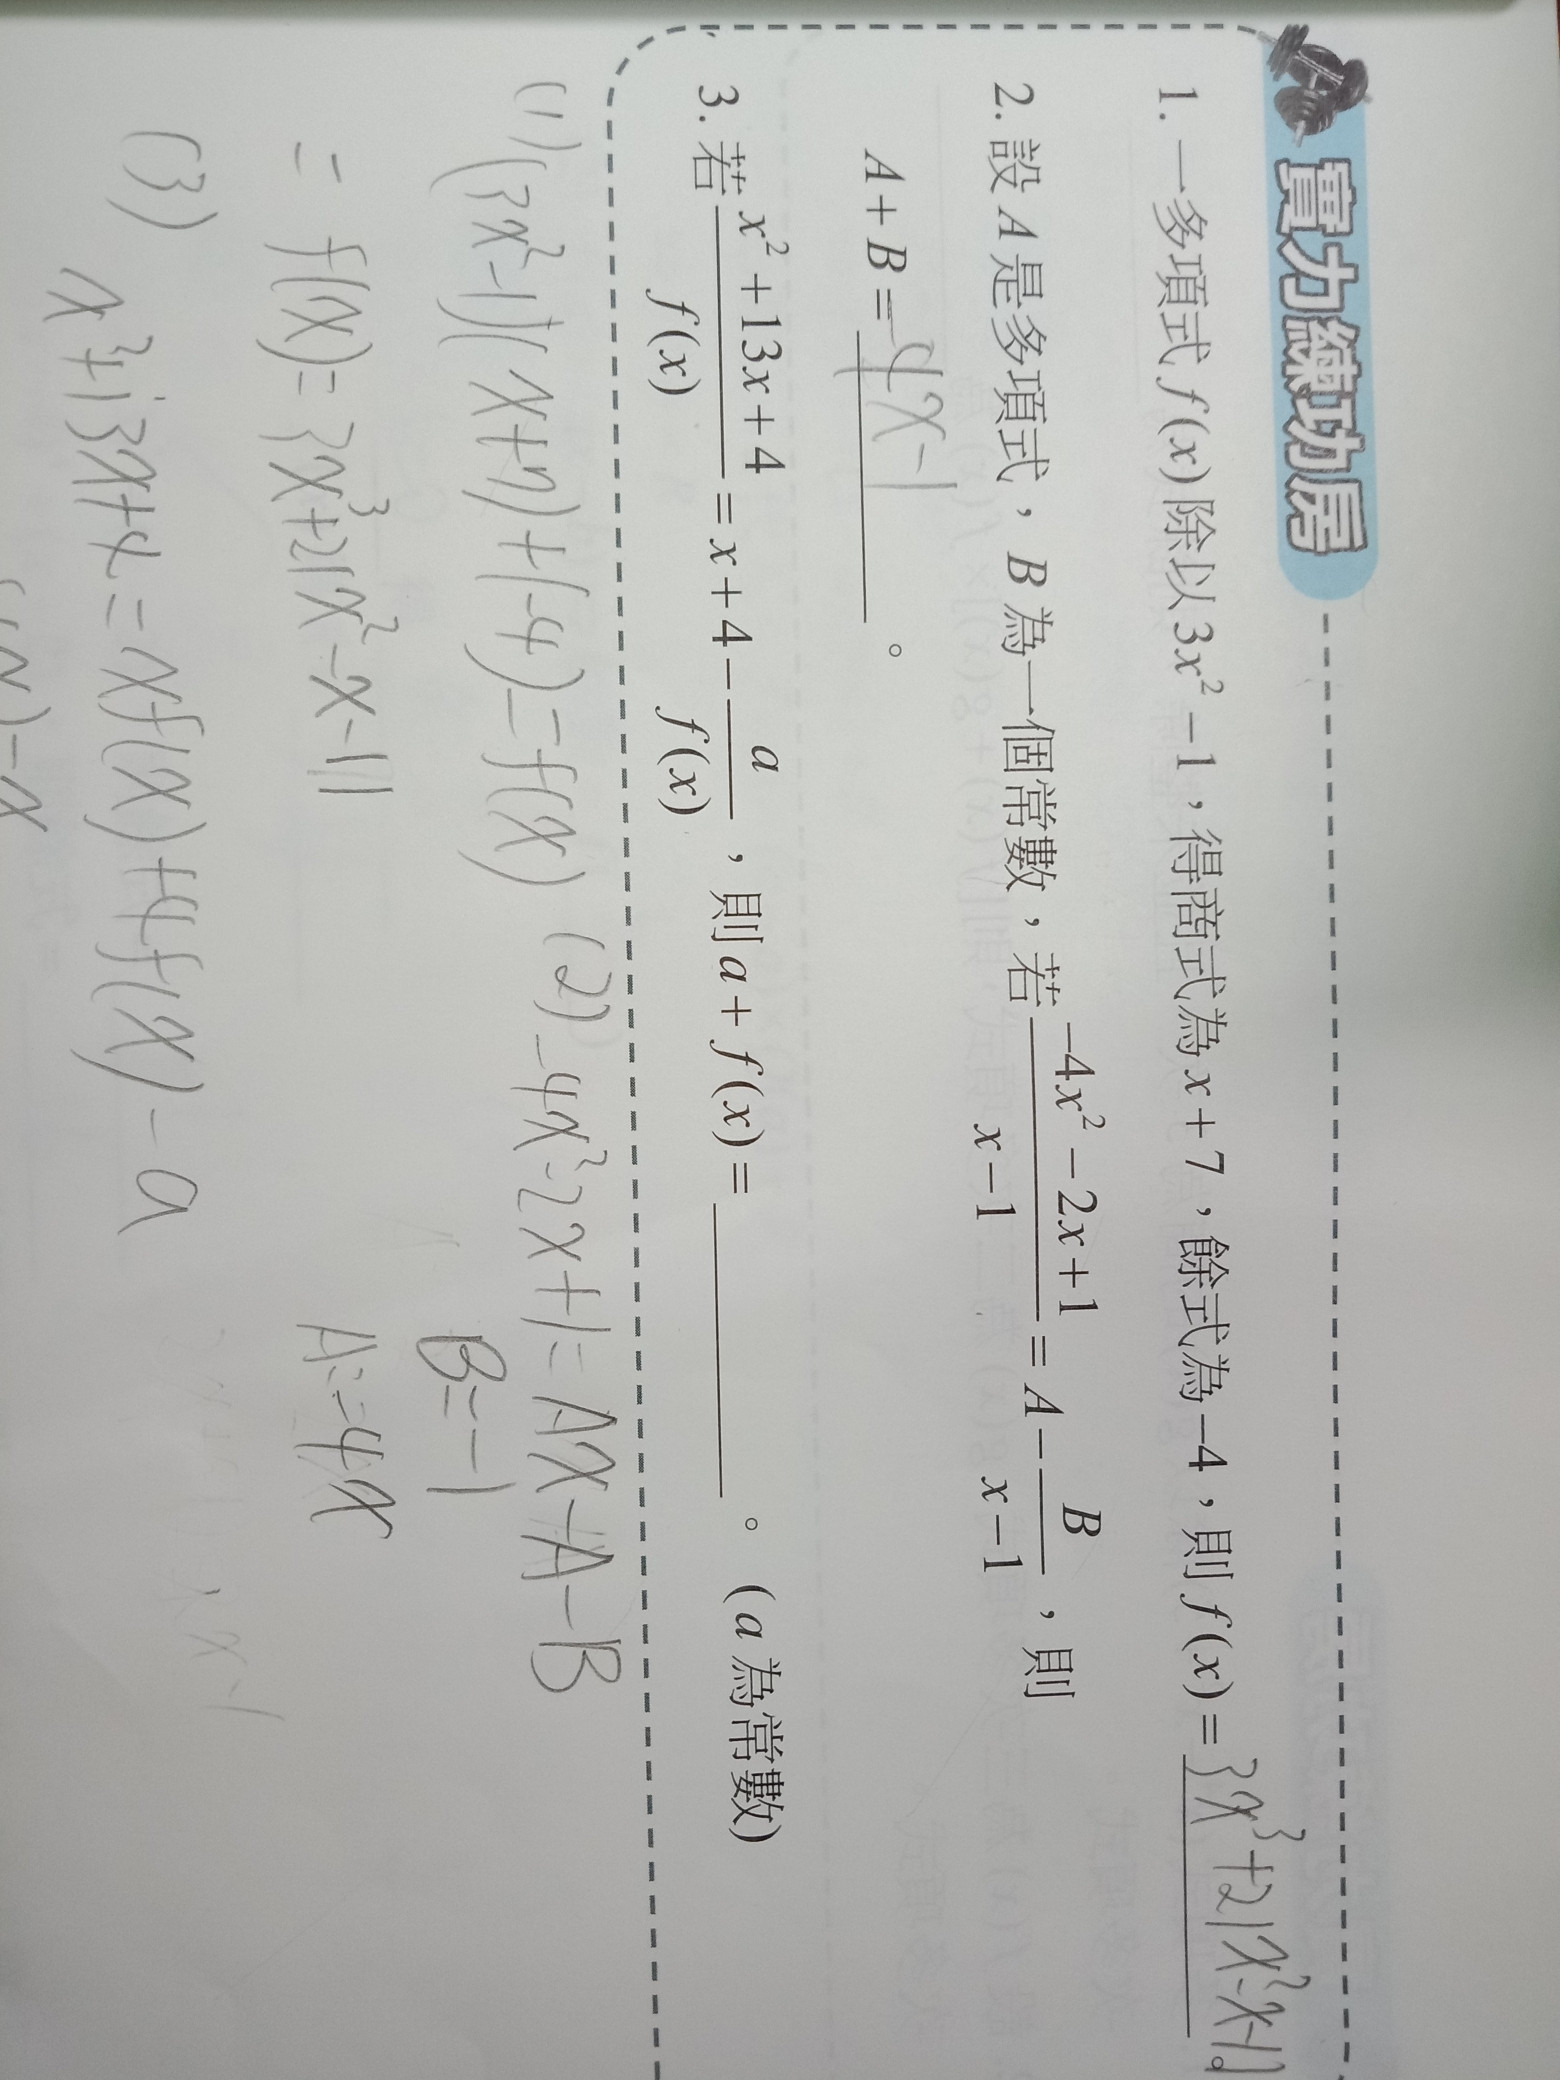 實力練功房
1. 一多項式 f(x) 除以 3x² − 1，得商式為 x + 7，餘式為 −4，則 f(x) = 3x³+21x²-x-11。
2. 設 A 是多項式，B 為一個常數，若 (−4x² − 2x + 1)/(x − 1) = A − B/(x − 1)，則
A + B = -4x-1。
3. 若 (x² + 13x + 4)/f(x) = x + 4 − a/f(x)，則 a + f(x) = ______。(a 為常數)
(1) (3x²-1)(x+7)+(-4)=f(x) (2) -4x²-2x+1=Ax-A-B
= f(x)=3x³+21x²-x-11
B=-1
A=-4x
(3) x²+13x+4=xf(x)+4f(x)-a